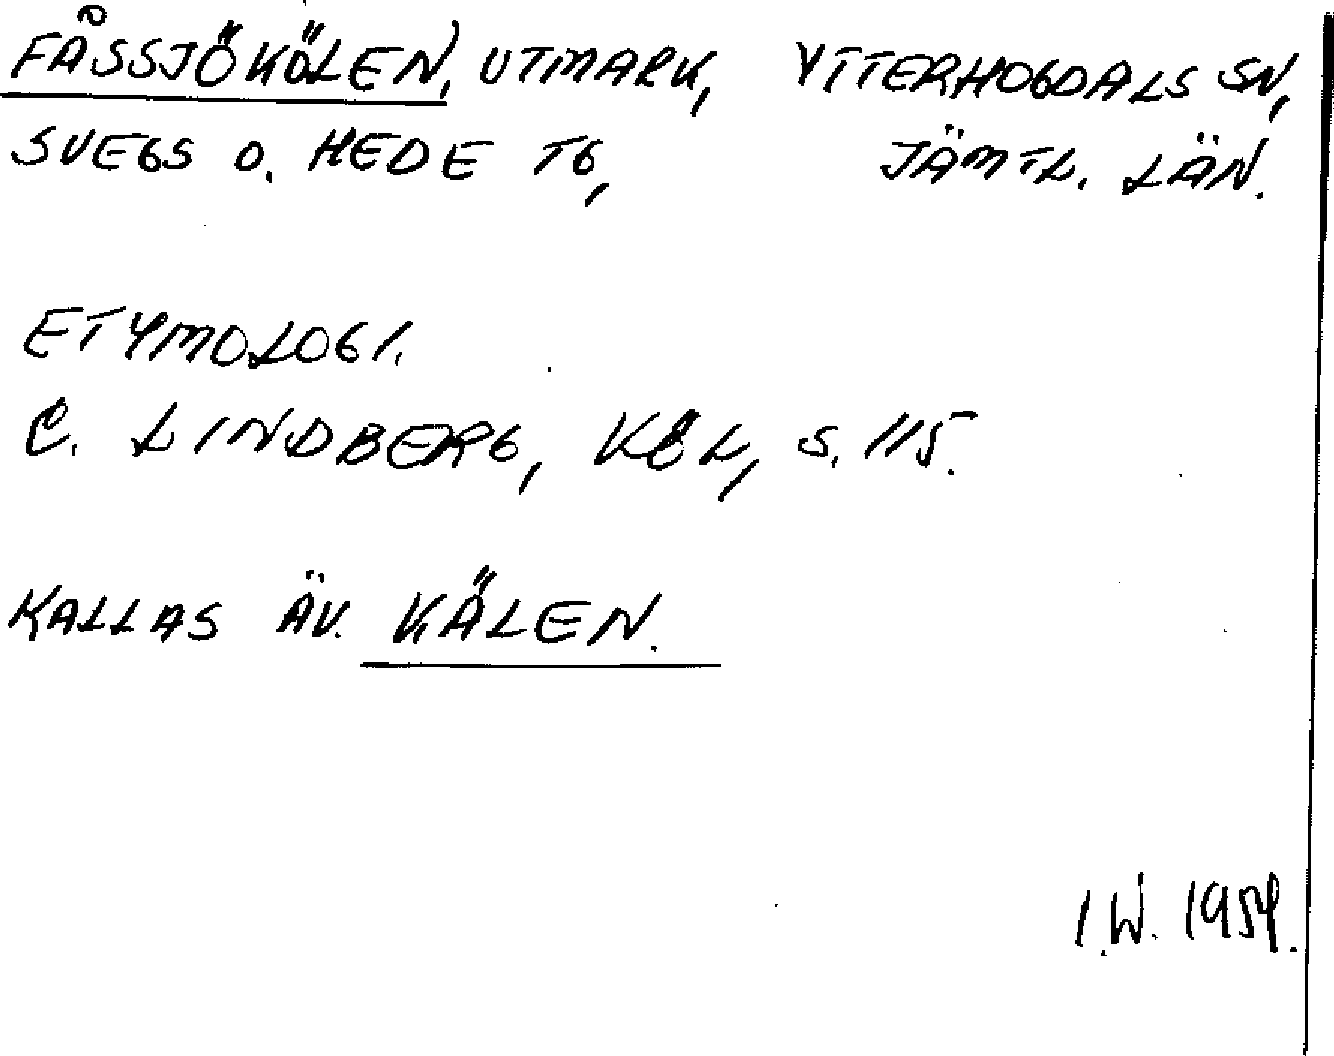 FÅSSJÖKÖLEN, UTMARK, YTTERHOGDALS SN,
SVEGS O. HEDE TG, JÄMTL. LÄN.
ETYMOLOGI.
C. LINDBERG, KÖL, S. 115.
KALLAS ÄV. KÄLEN.
I.W. 1954.